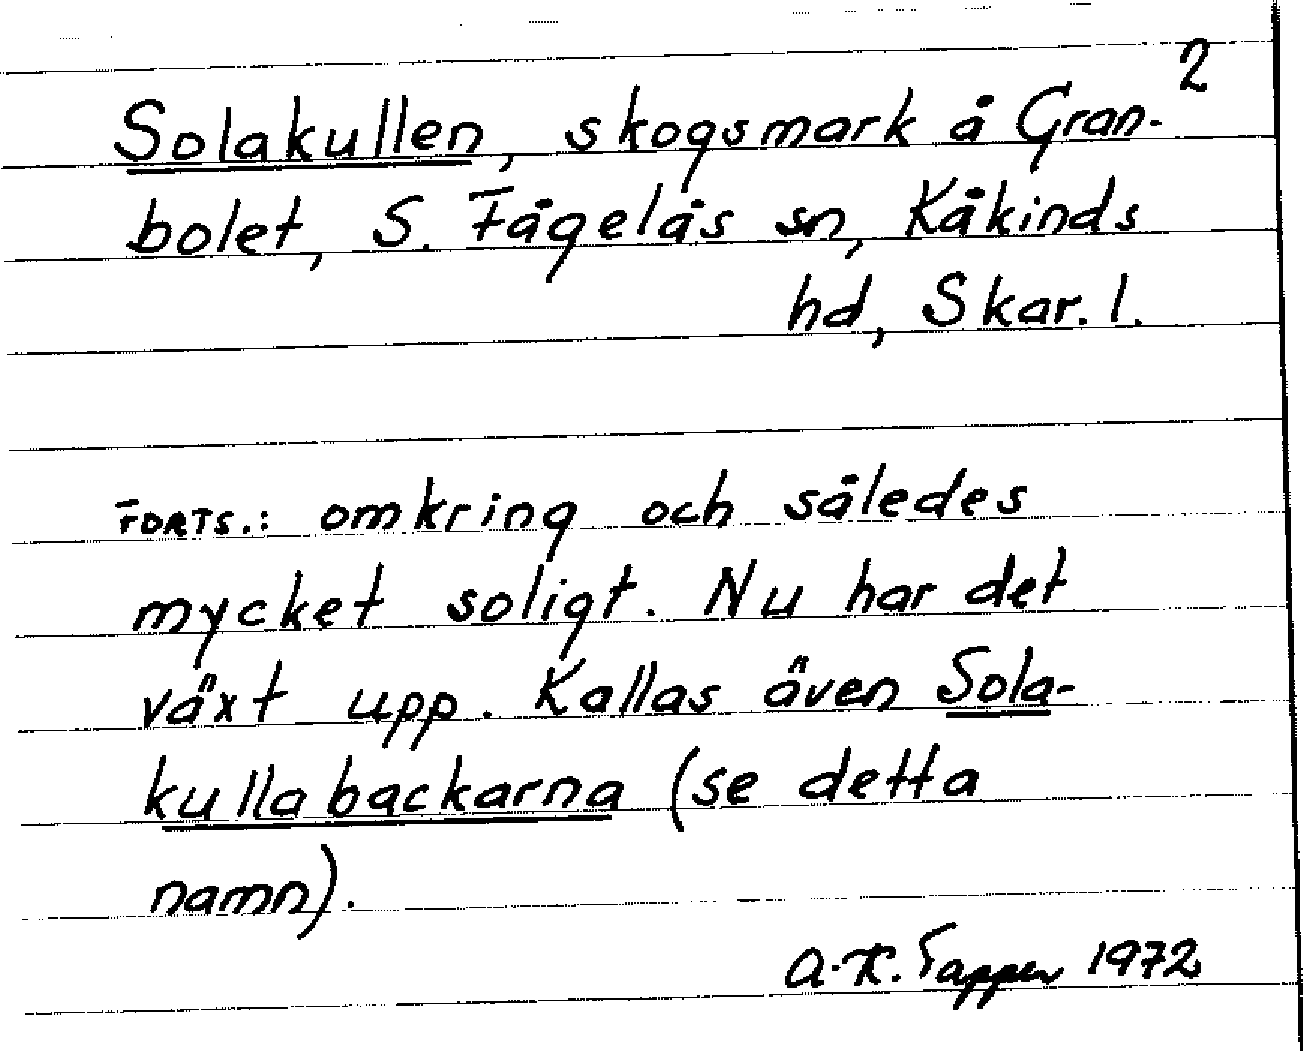 2
Solakullen, skogsmark å Gran-
bolet, S. Fågelås sn, Kåkinds
hd, Skar. l.
FORTS.: omkring och således
mycket soligt. Nu har det
växt upp. Kallas även Sola-
kullabackarna (se detta
namn).
A-K. Tapper 1972